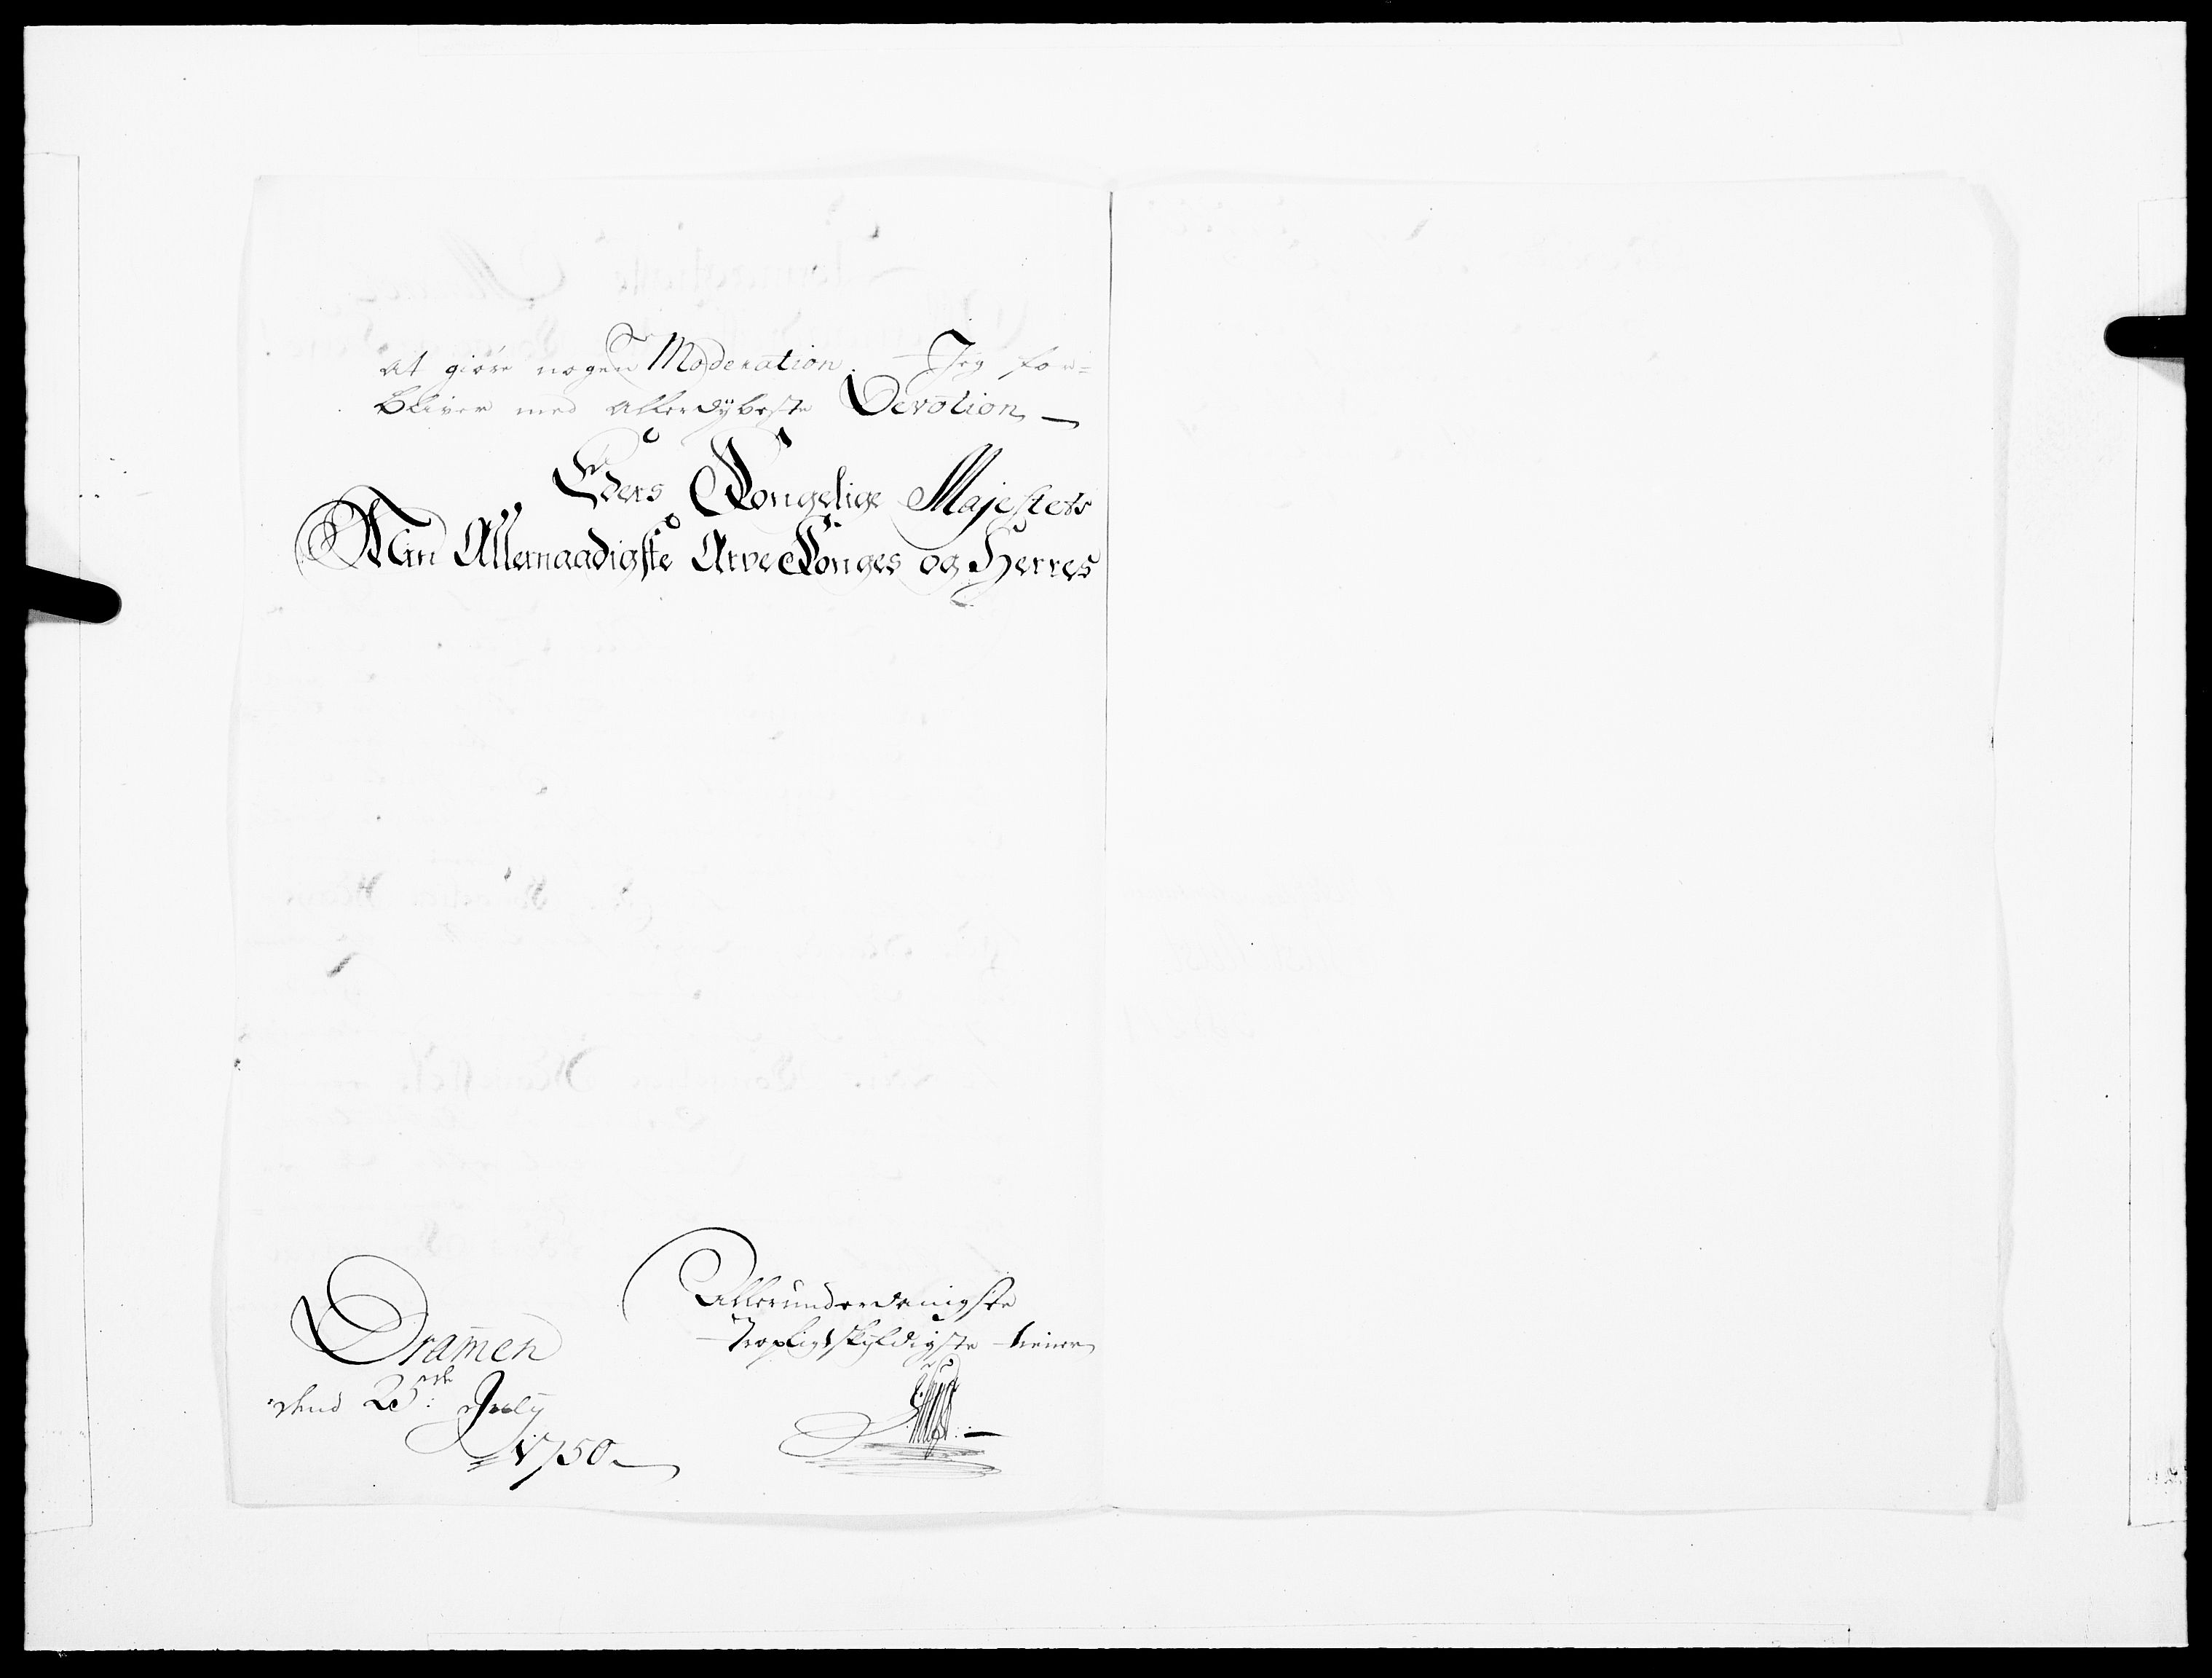 at giøre nogen Moderation. Jeg for=
bliver med allerdybeste Devotion
Eders Kongelige Majestets
Min Allernaadigste Arve Konges og Herres
Allerunderdanigste
Dramen
Tropligtskyldigste tiener
dend 25de July
1750